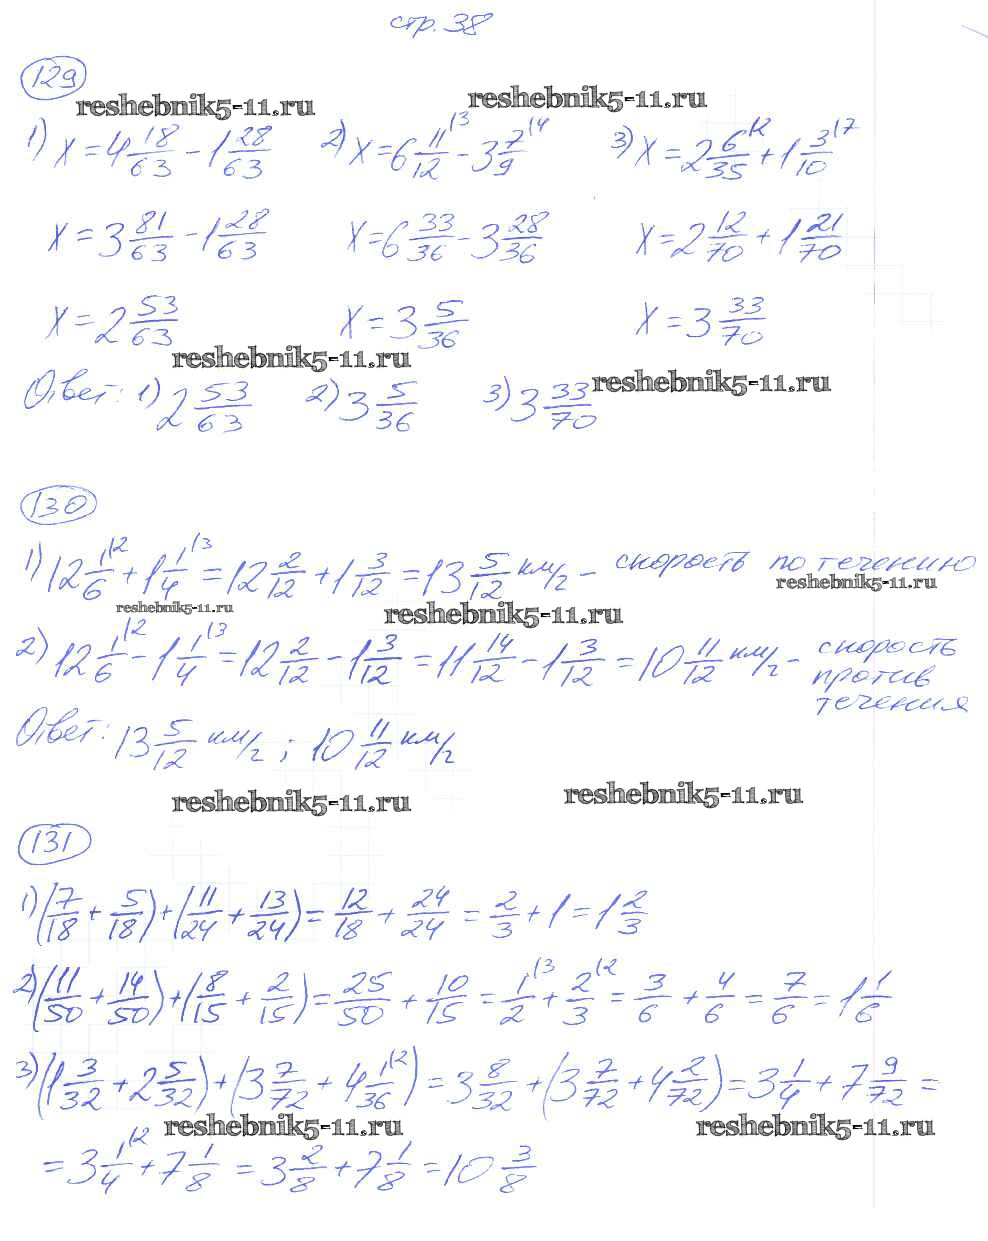 стр. 38
129
reshebnik5-11.ru reshebnik5-11.ru
1) x = 4 18/63 - 1 28/63 2) x = 6 11/12 (3 - 3 7/9 (4 3) x = 2 6/35 (2 + 1 3/10 (7
x = 3 81/63 - 1 28/63 x = 6 33/36 - 3 28/36 x = 2 12/70 + 1 21/70
x = 2 53/63 x = 3 5/36 x = 3 33/70
reshebnik5-11.ru reshebnik5-11.ru
Ответ: 1) 2 53/63 2) 3 5/36 3) 3 33/70
130
1) 12 1/6 (2 + 1 1/4 (3 = 12 2/12 + 1 3/12 = 13 5/12 км/г - скорость по течению
reshebnik5-11.ru
reshebnik5-11.ru reshebnik5-11.ru
2) 12 1/6 (2 - 1 1/4 (3 = 12 2/12 - 1 3/12 = 11 14/12 - 1 3/12 = 10 11/12 км/г - скорость
против
течения
Ответ: 13 5/12 км/г ; 10 11/12 км/г
reshebnik5-11.ru reshebnik5-11.ru
131
1) (7/18 + 5/18) + (11/24 + 13/24) = 12/18 + 24/24 = 2/3 + 1 = 1 2/3
2) (11/50 + 14/50) + (8/15 + 2/15) = 25/50 + 10/15 = 1/2 (3 + 2/3 (2 = 3/6 + 4/6 = 7/6 = 1 1/6
3) (1 3/32 + 2 5/32) + (3 7/72 + 4 1/36 (2) = 3 8/32 + (3 7/72 + 4 2/72) = 3 1/4 + 7 9/72 =
reshebnik5-11.ru reshebnik5-11.ru
= 3 1/4 (2 + 7 1/8 = 3 2/8 + 7 1/8 = 10 3/8